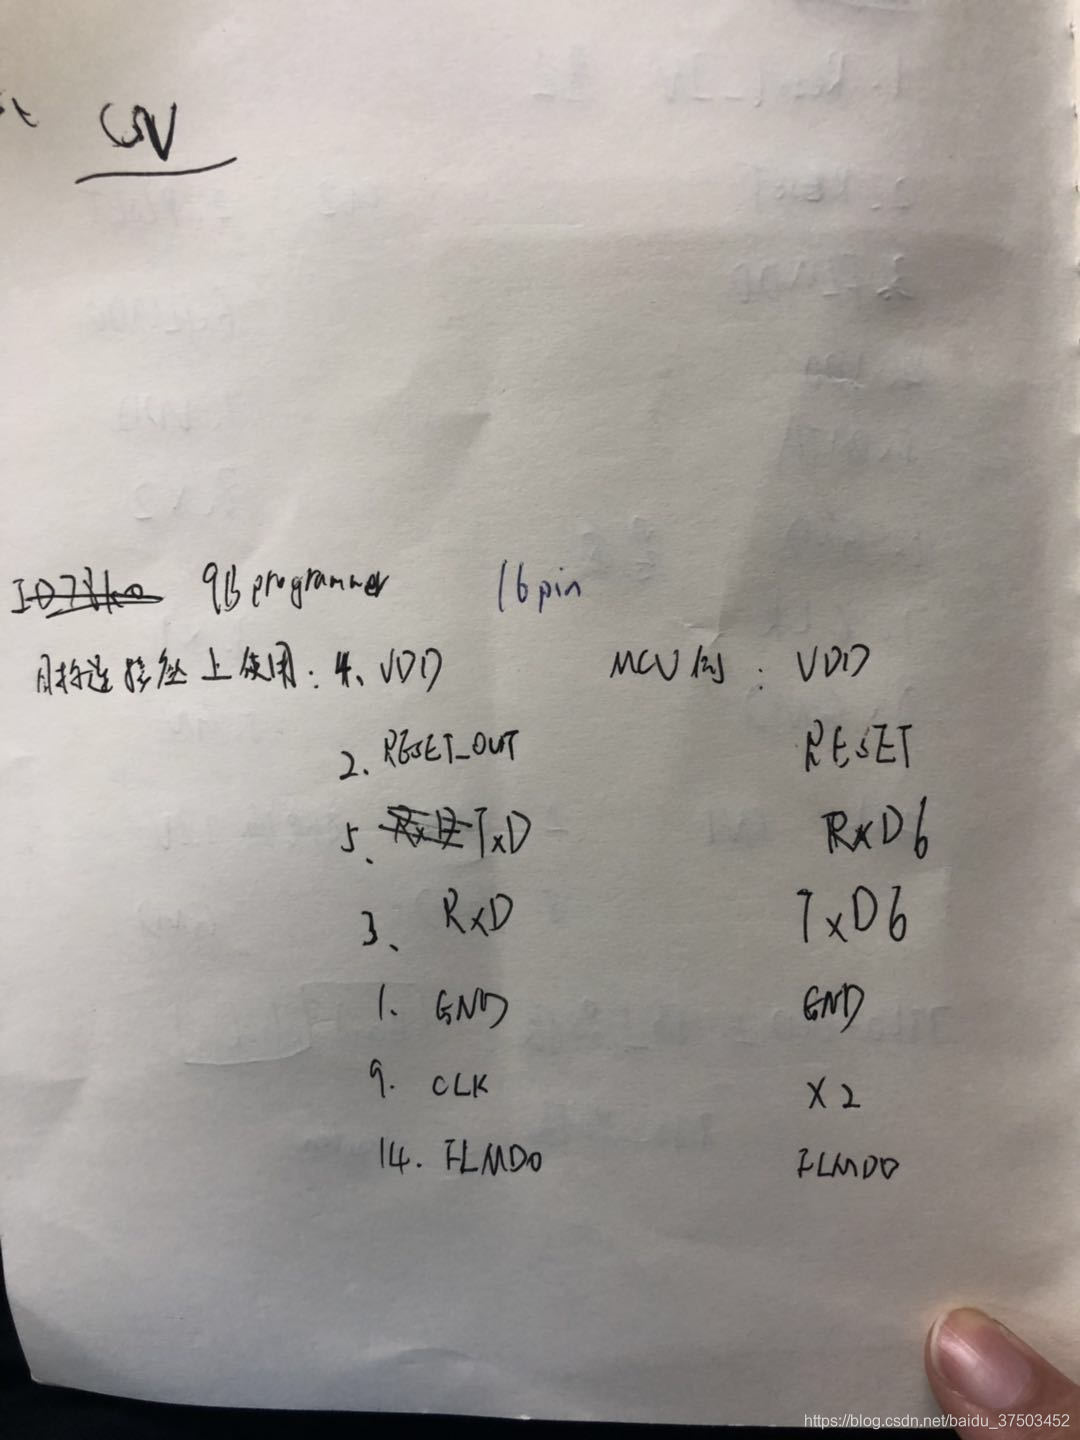 ID78K0 QB programmer 16pin
目标连接座上使用: 4、VDD MCU侧: VDD
2. RESET_OUT RESET
5、 RxD TxD RxD6
3、 RxD TxD6
1. GND GND
9. CLK X2
14. FLMD0 FLMD0
https://blog.csdn.net/baidu_37503452